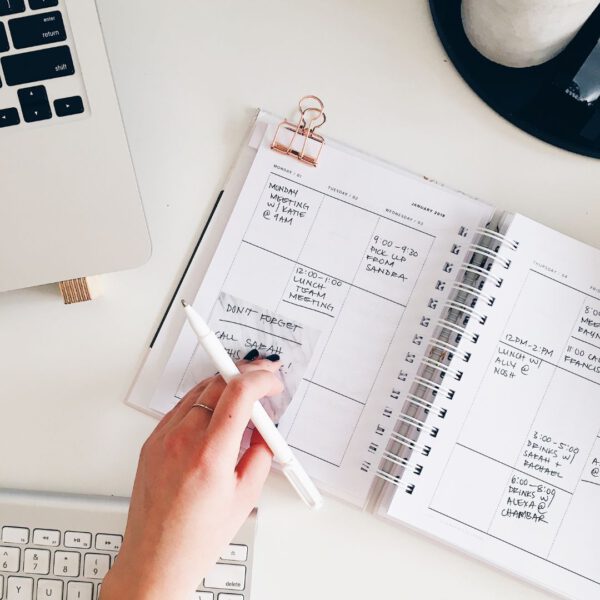 enter
return
shift
MONDAY / 01
TUESDAY / 02
JANUARY 2018
WEDNESDAY / 03
MONDAY
MEETING
W/ KATIE
@ 9AM
12:00-1:00
LUNCH
TEAM
MEETING
9:00-9:30
PICK UP
FROM
SANDRA
DON'T FORGET
CALL SARAH
THIS
THURSDAY / 04
12PM-2PM
LUNCH W/
ALLY @
NOSH
3:00-5:00
DRINKS W/
SARAH +
RACHAEL
6:00-8:00
DRINKS W/
ALEXA @
CHAMBAR
11:00 CA
FRANCIS
delete
Y
U